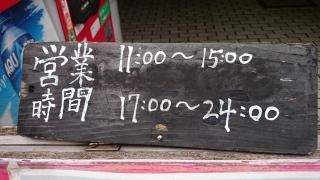 営業時間
11:00～15:00
17:00～24:00